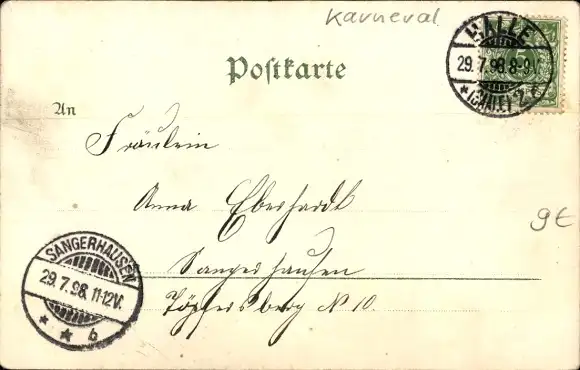 Karneval
HALLE
29.7.98.8-9V.
* (SAALE) 2 *
5
Postkarte
An
Fräulein
Anna Eberhardt
9€
Sangerhausen
Töpfersberg No 10.
SANGERHAUSEN
29.7.98.11-12V.
* * b